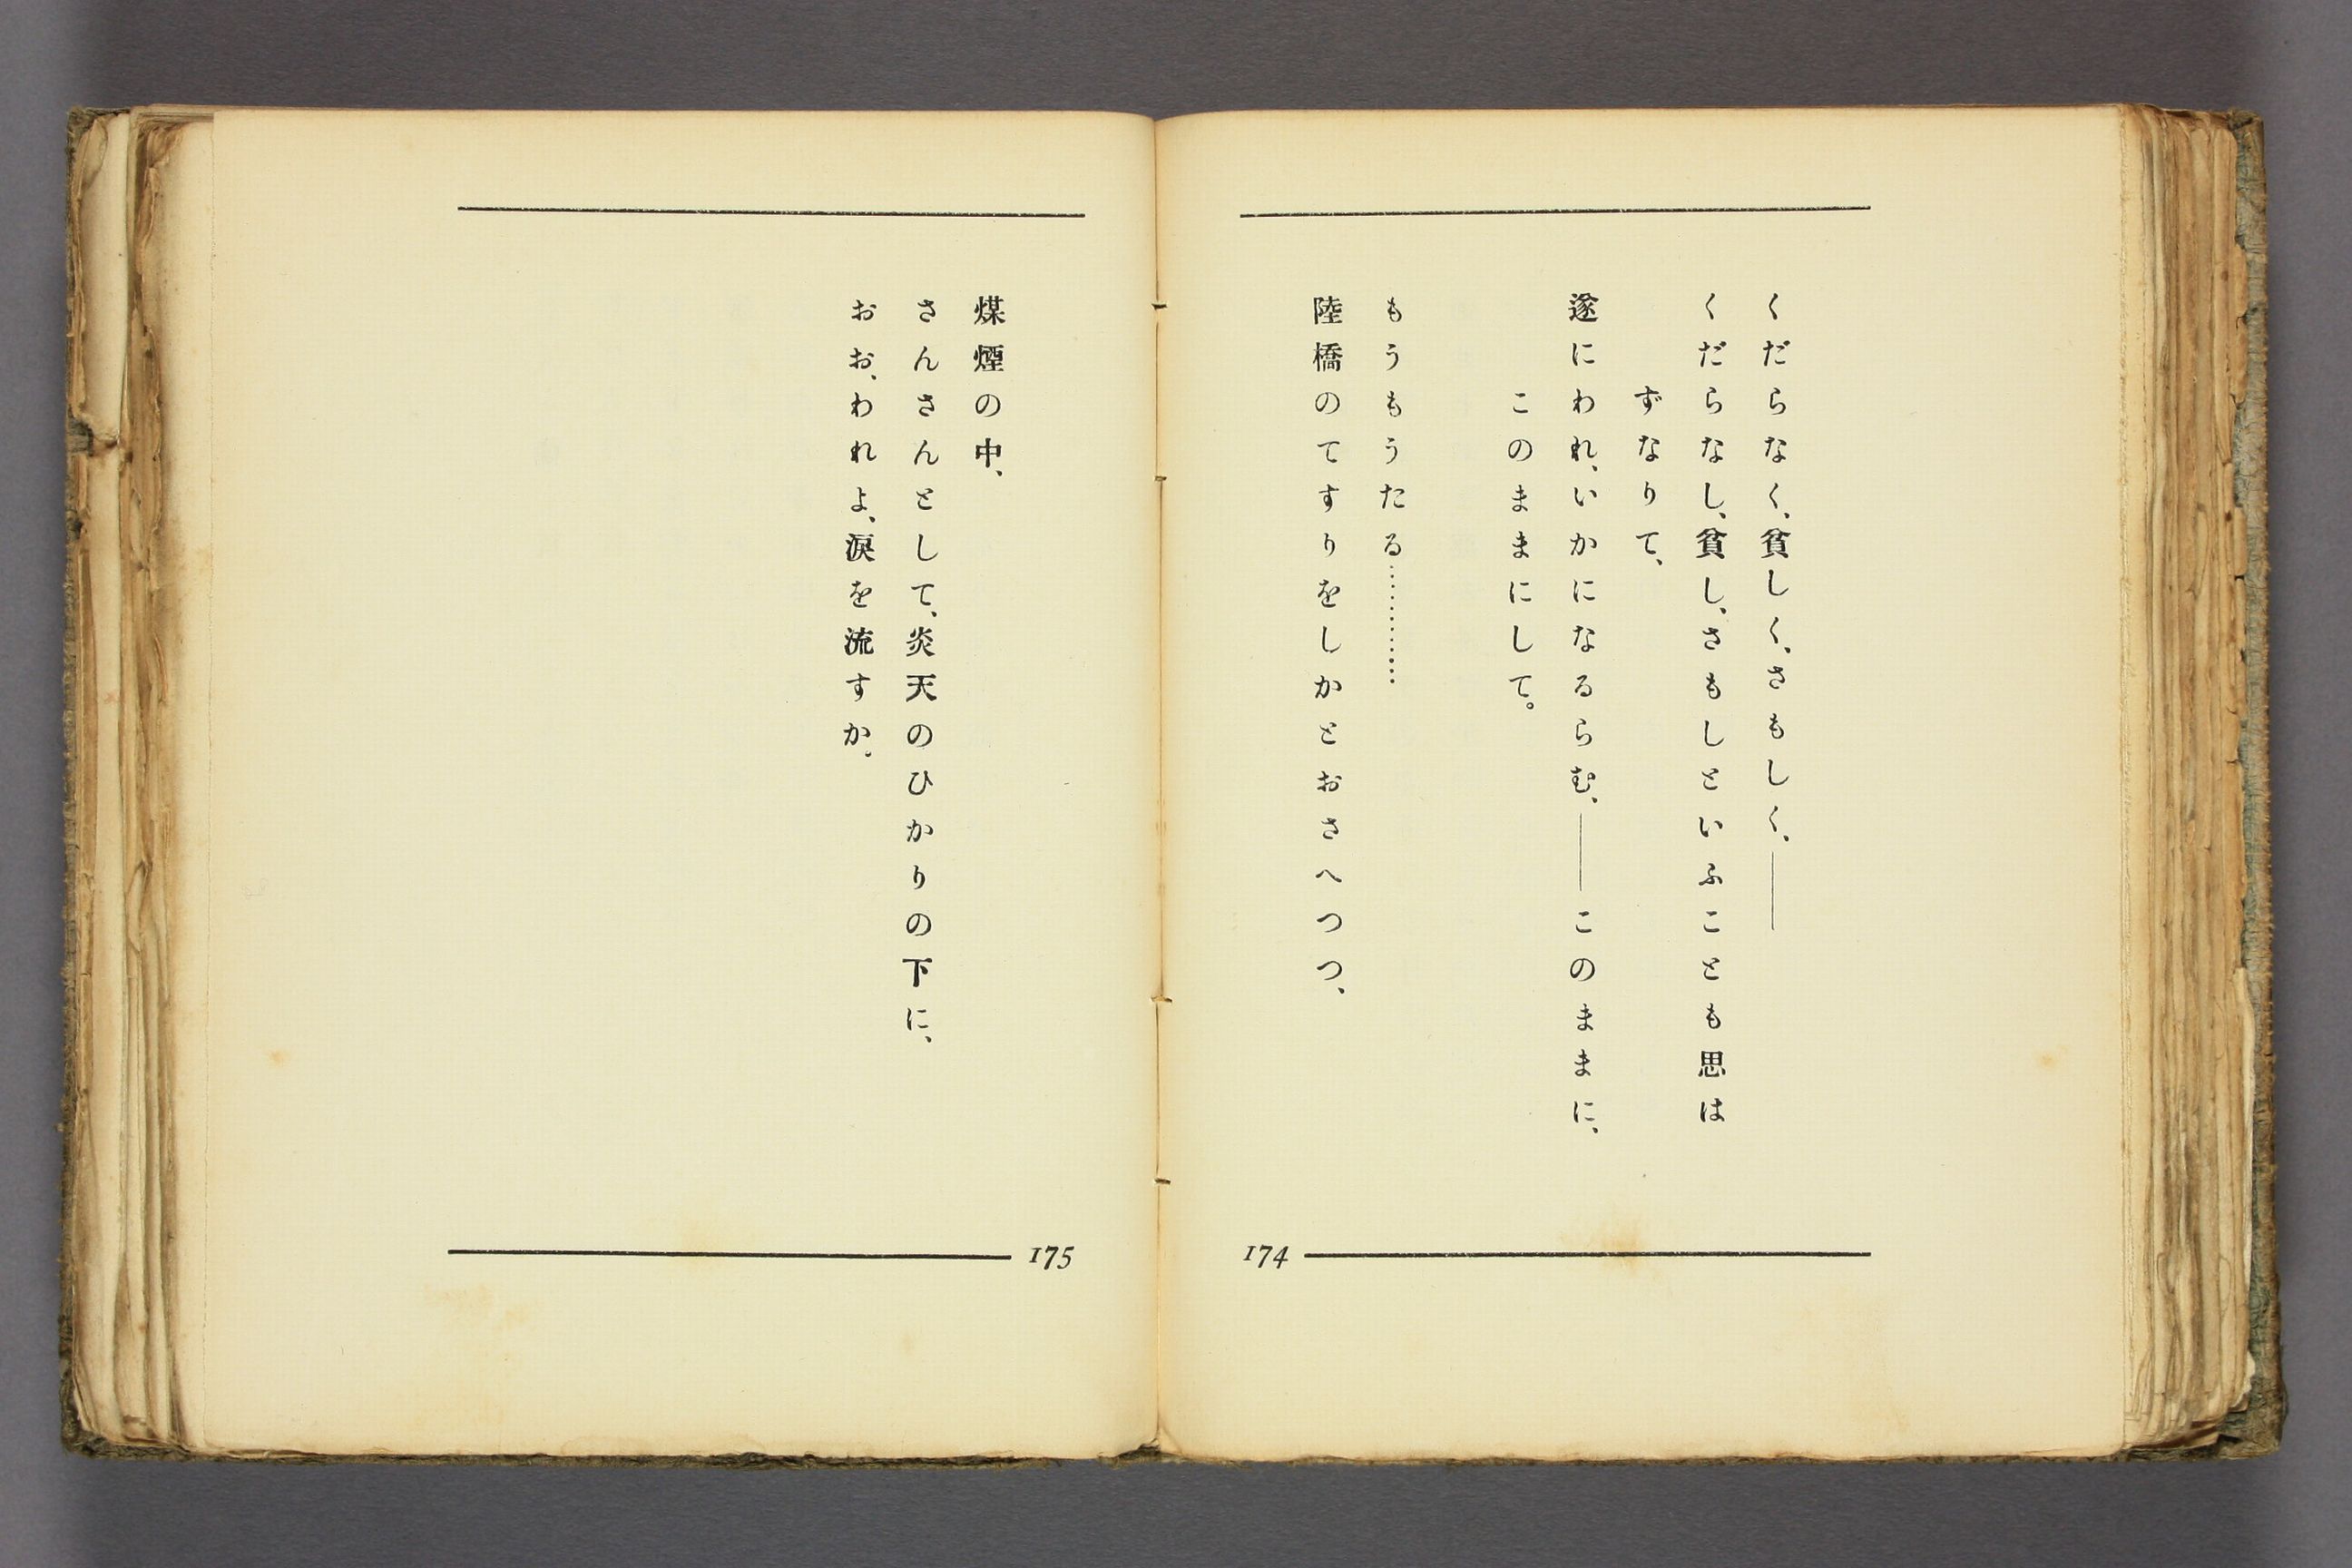 くだらなく、貧しく、さもしく、――
くだらなし、貧し、さもしといふことも思は
ずなりて、
遂にわれ、いかになるらむ、――このままに、
このままにして。
もうもうたる…………
陸橋のてすりをしかとおさへつつ、
174
煤煙の中、
さんさんとして、炎天のひかりの下に、
おお、われよ、涙を流すか。
175